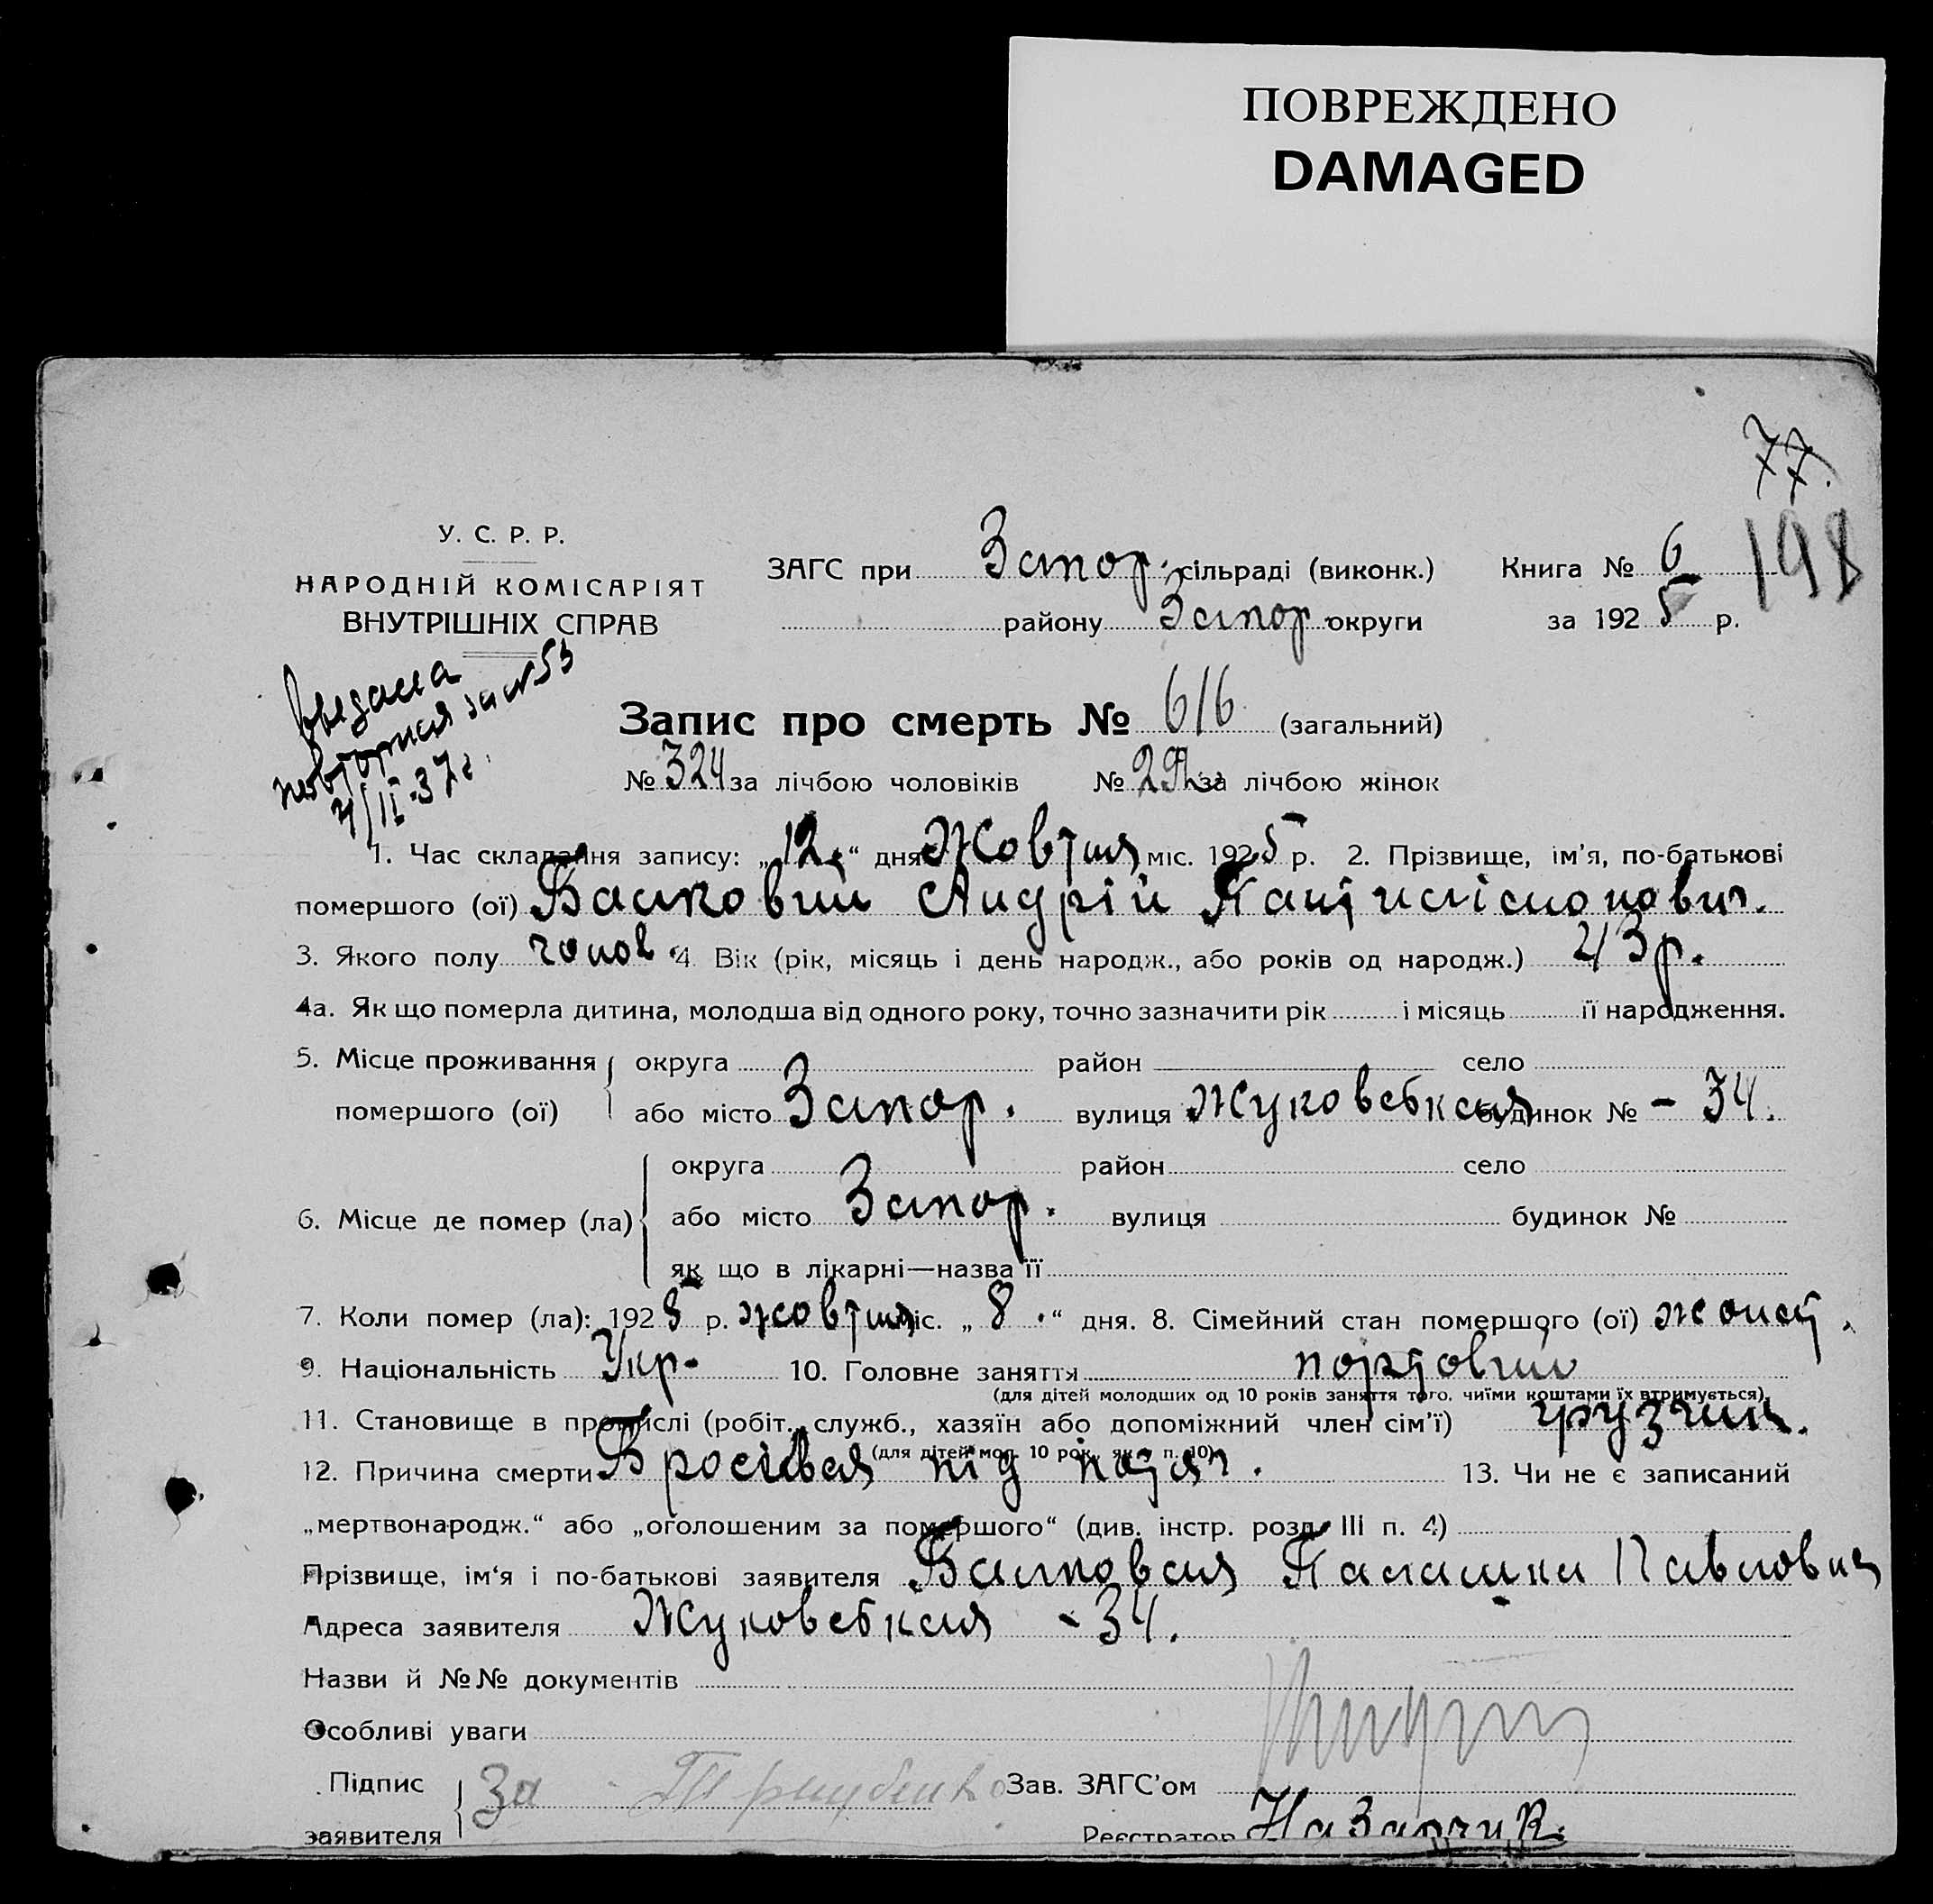 ПОВРЕЖДЕНО
DAMAGED
77.
198
У. С. Р. Р.
НАРОДНІЙ КОМІСАРІЯТ
ВНУТРІШНІХ СПРАВ
ЗАГС при Запор. сільраді (виконк.) Книга № 6
району Запор округи за 1925 р.
повторная за №53
4/II-37г.
Запис про смерть № 616 (загальний)
№ 324 за лічбою чоловіків № за лічбою жінок
1. Час складання запису: „12.“ дня Жовтня міс. 1925 р. 2. Прізвище, ім’я, по-батькові
помершого (ої) Андрій
3. Якого полу чолов. 4. Вік (рік, місяць і день народж., або років од народж.) 43р.
4а. Як що померла дитина, молодша від одного року, точно зазначити рік і місяць її народження.
5. Місце проживання округа район село
помершого (ої) або місто Запор. вулиця Жуковська будинок № - 34.
округа район село
6. Місце де помер (ла) або місто Запор. вулиця будинок №
як що в лікарні—назва її
7. Коли помер (ла): 1925 р. жовтня міс. „8.“ дня. 8. Сімейний стан помершого (ої)
9. Національність Укр- 10. Головне заняття портовий
(для дітей молодших од 10 років заняття того, чиїми коштами їх втримується)
11. Становище в промислі (робіт., служб., хазяїн або допоміжний член сім’ї) грузчик.
(для дітей мол. 10 рок. як в п. 10)
12. Причина смерти під потяг. 13. Чи не є записаний
„мертвонародж.“ або „оголошеним за помершого“ (див. інстр. розд. III п. 4)
Прізвище, ім‘я і по-батькові заявителя Павловна
Адреса заявителя Жуковська - 34.
Назви й №№ документів
Особливі уваги
Підпис За Зав. ЗАГС’ом
заявителя Реєстратор Назарчук